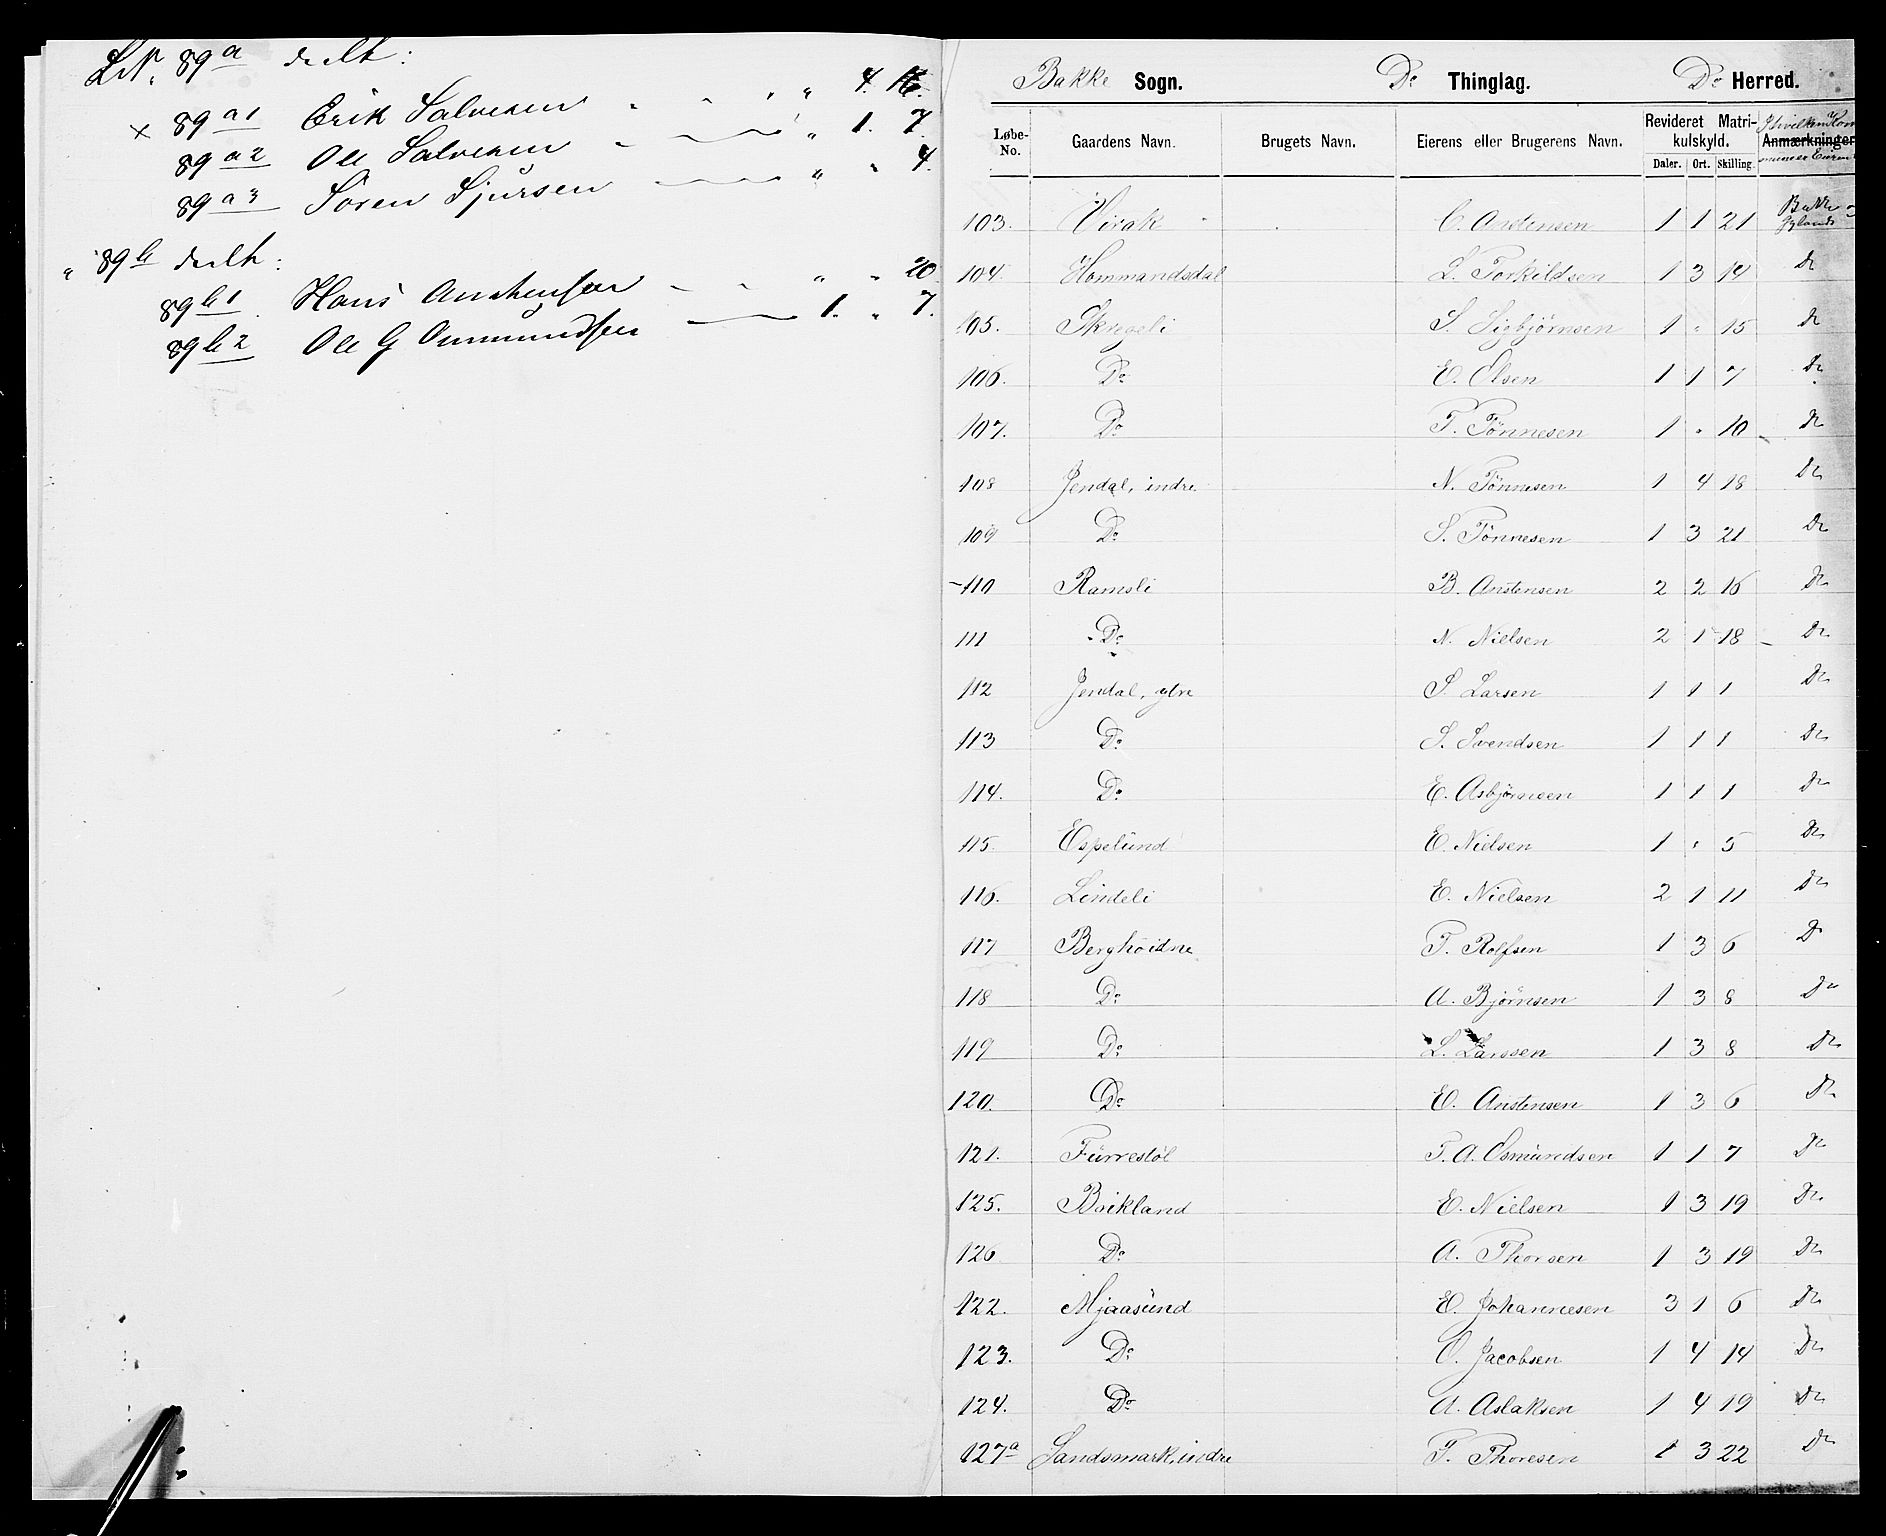 LN. 89a delt:
× 89a1 Erik Salvesen " 4. 16.
89a2 Ole Salvesen " 1. 7.
89a3 Søren Sjursen " " 4.
" 89b delt:
89b1 Hans Anstensen " " 20
89b2 Ole G Ommundsen 1. " 7.
Bakke Sogn. Do Thinglag. Do Herred.
Løbe-No. Gaardens Navn. Brugets Navn. Eierens eller Brugerens Navn. Revideret Matrikulskyld. Daler. Ort. Skilling. Anmærkninger
103. Virak C. Anstensen 1 1 21 Bakke
104. Hommandsdal L. Torkildsen 1 3 14 Do
105. Skregeli S. Sigbjørnsen 1 " 15 Do
106. Do E. Olsen 1 1 7 Do
107. Do T. Tønnesen 1 " 10 Do
108 Jendal, indre N. Tønnesen 1 4 18 Do
109 Do S. Tønnesen 1 3 21 Do
110 Ramsli B. Anstensen 2 2 16 Do
111 Do N. Nielsen 2 1 18 Do
112 Jendal, ytre S. Larsen 1 1 1 Do
113 Do S. Svendsen 1 1 1 Do
114. Do E. Asbjørnsen 1 1 1 Do
115. Espelund E. Nielsen 1 " 5 Do
116. Lindeli E. Nielsen 2 1 11 Do
117 Berghøidne T. Rolfsen 1 3 6 Do
118 Do A. Bjørnsen 1 3 8 Do
119 Do L. Larssen 1 3 8 Do
120. Do E. Anstensen 1 3 6 Do
121. Furrestøl T. A. Osmundsen 1 1 7 Do
125. Boikland E. Nielsen 1 3 19 Do
126 Do A. Thorsen 1 3 19 Do
122. Mjaasund E. Johannesen 3 1 6 Do
123. Do O. Jacobsen 1 4 14 Do
124. Do A. Aslaksen 1 4 19 Do
127a Sandsmark, indre T. Thoresen 1 3 22 Do